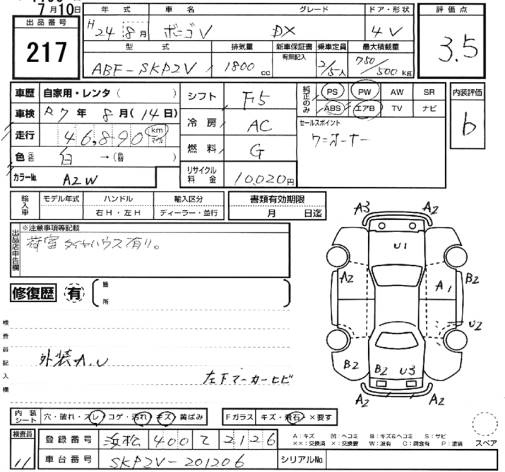 7月10日
出品番号 217
年式 車名 グレード ドア・形状
H24年8月 ボーゴV DX 4V
型式 排気量 新車保証書 有無記入 乗車定員 最大積載量
ABF-SKP2V 1800cc 2/5人 750/500kg
評価点 3.5
車歴 自家用・レンタ( )
車検 R7年8月(14日)
走行 46,890 km
色 白 →( )
カラーNo. A2W
シフト F5
冷房 AC
燃料 G
リサイクル料金 10,020円
純正のみ PS PW AW SR
ABS エアB TV ナビ
セールスポイント
ワンオーナー
内装評価 b
輸入車 モデル年式 ハンドル 輸入区分
右H・左H ディーラー・並行
書類有効期限
月 日迄
出品店申告欄 ※注意事項等記載
荷室タイヤハウス有り。
修復歴 有 箇所
検査員記入欄
外装A.U
左下マーカーヒビ
A3 A2 U1 A2 B2 A1 A2 U2 B2 B2 U3 A2
内装シート 穴・破れ・スレ コゲ・汚れ キズ 黄ばみ
Fガラス キズ・飛石 ×要す
検査員 11
登録番号 浜松 400 て 2126
車台番号 SKP2V-201206
シリアルNo.
A:キズ M:ヘコミ B:キズ&ヘコミ S:サビ
××:交換済 X:交換 W:波有 C:腐食有 P:塗装
スペア